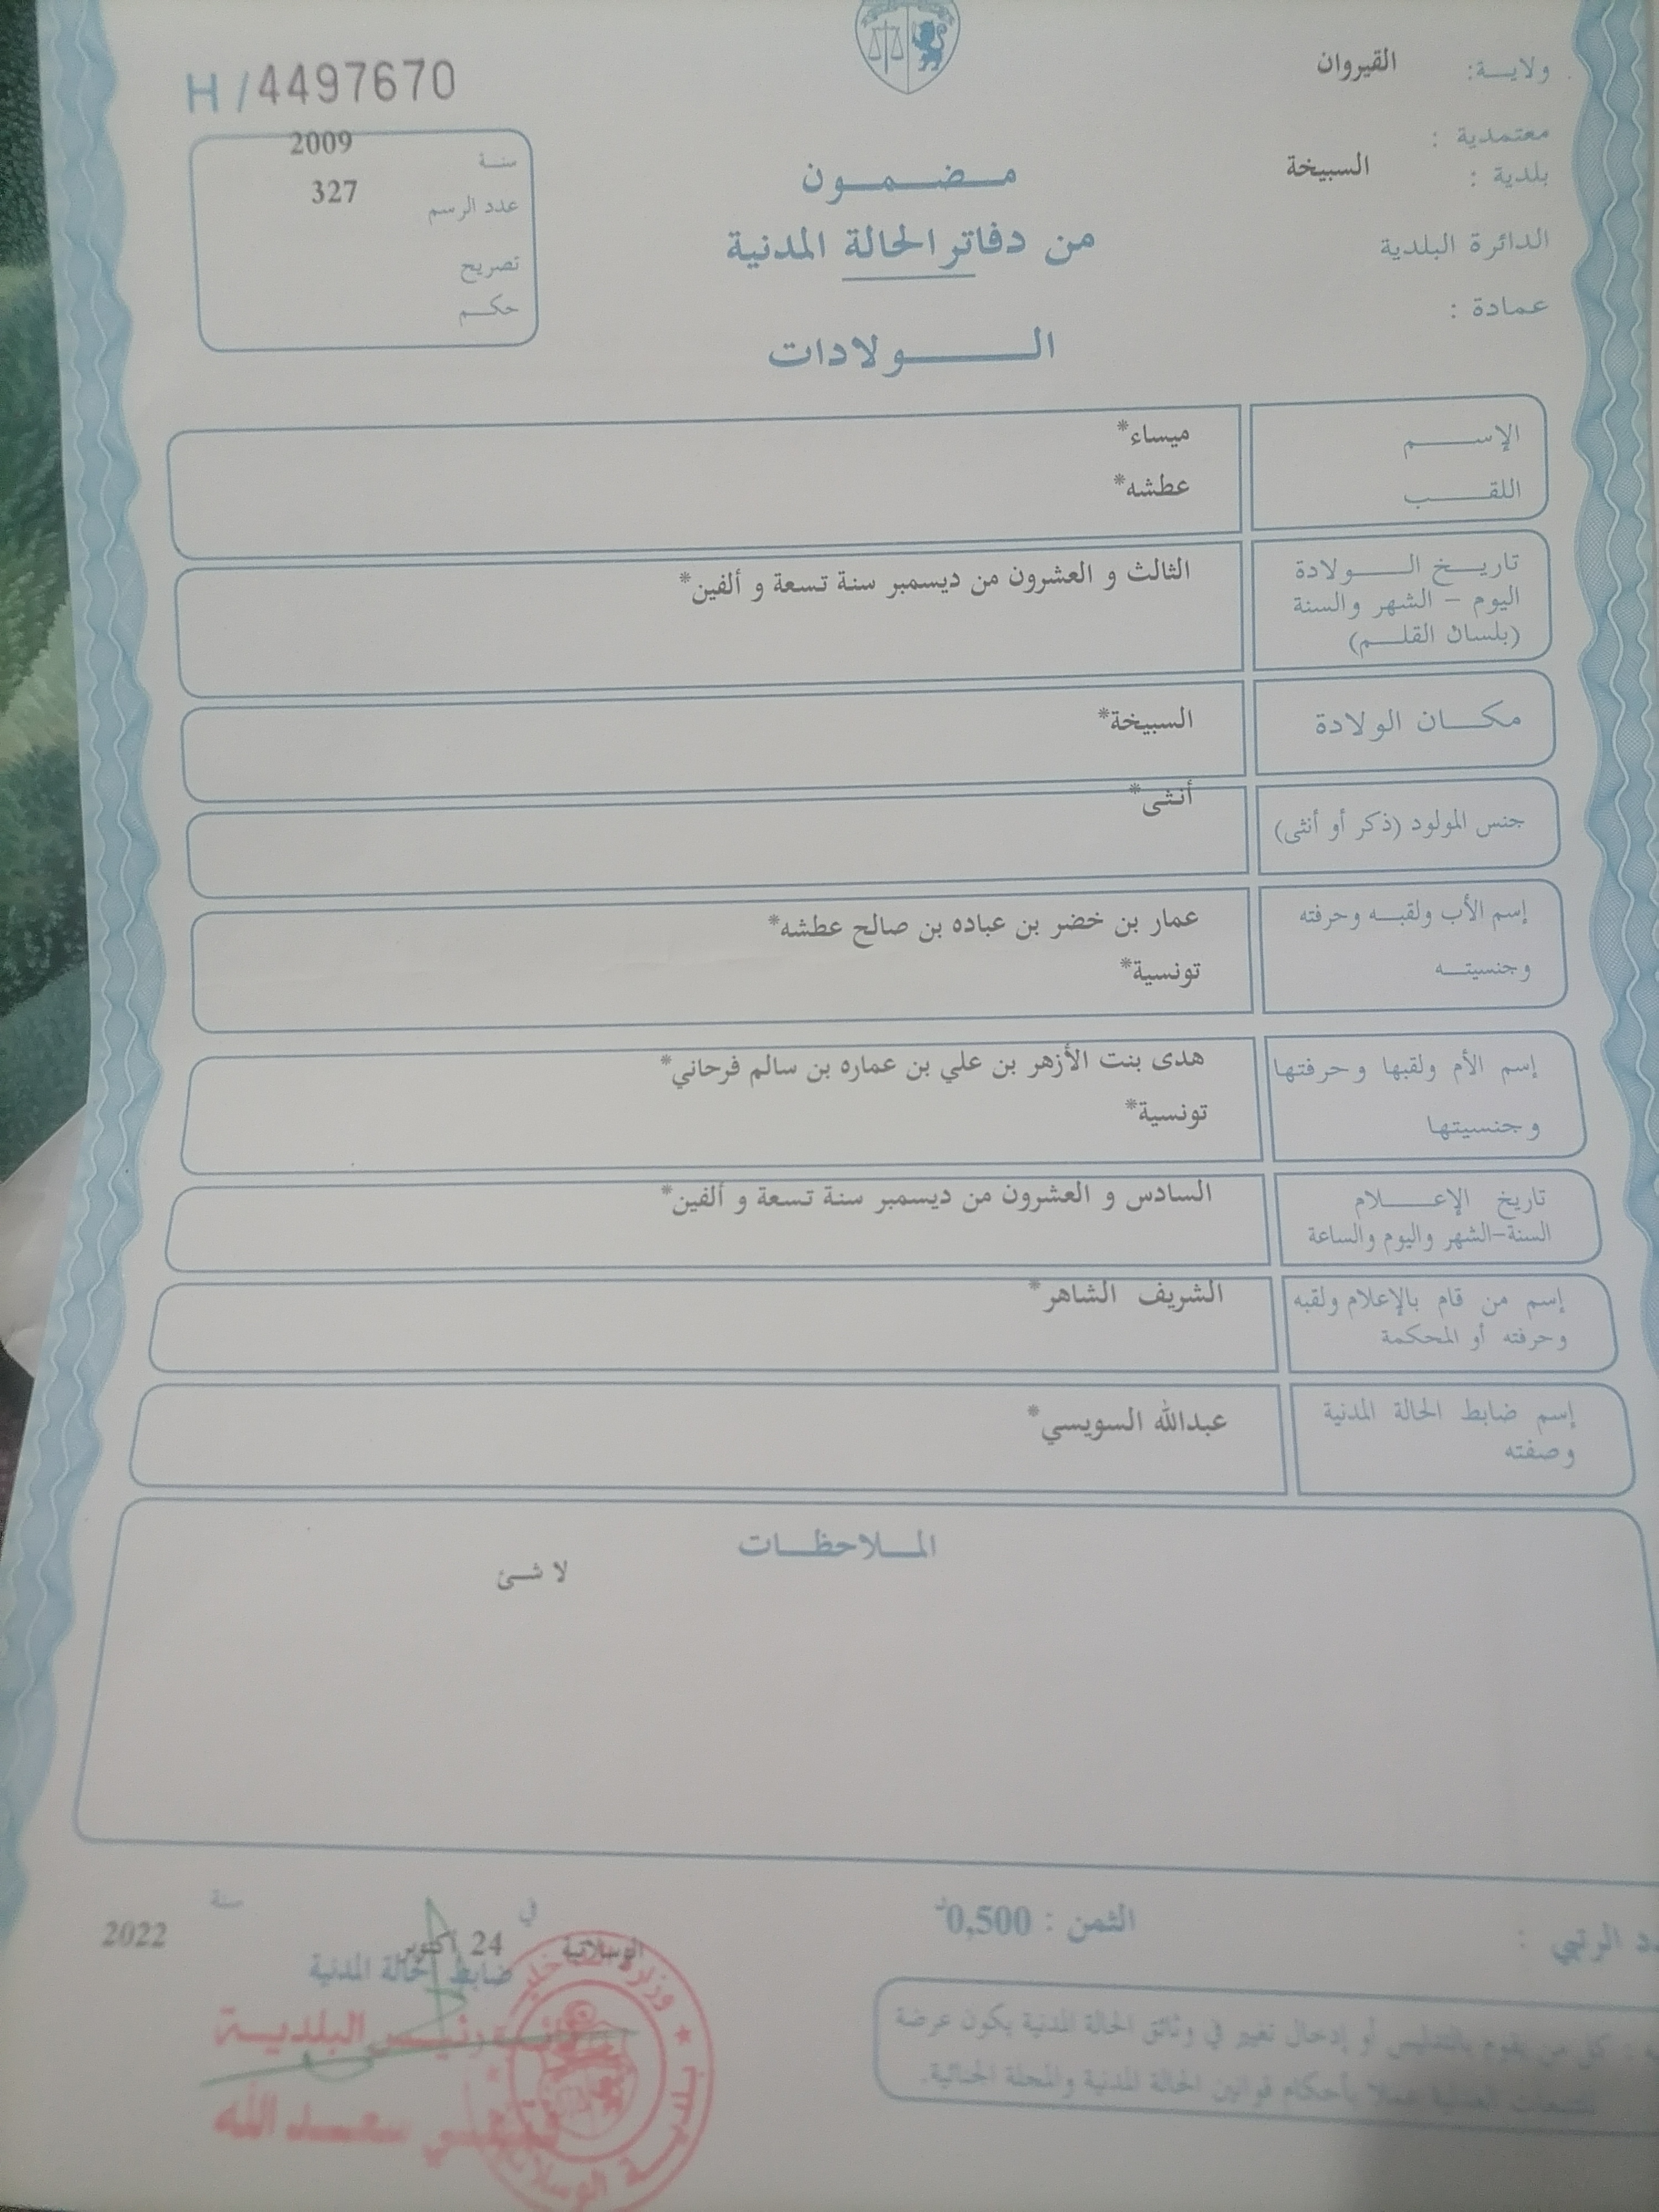 ولاية: القيروان
معتمدية :
بلدية : السبيخة
الدائرة البلدية
عمادة :
H/4497670
سنة 2009
عدد الرسم 327
تصريح
حكم
مضمون
من دفاتر الحالة المدنية
الولادات
الإسم ميساء*
اللقب عطشه*
تاريخ الولادة الثالث و العشرون من ديسمبر سنة تسعة و ألفين*
اليوم - الشهر والسنة
(بلسان القلم)
مكان الولادة السبيخة*
جنس المولود (ذكر أو أنثى) أنثى*
إسم الأب ولقبه وحرفته عمار بن خضر بن عباده بن صالح عطشه*
وجنسيته تونسية*
إسم الأم ولقبها وحرفتها هدى بنت الأزهر بن علي بن عماره بن سالم فرحاني*
وجنسيتها تونسية*
تاريخ الإعلام السادس و العشرون من ديسمبر سنة تسعة و ألفين*
السنة-الشهر واليوم والساعة
إسم من قام بالإعلام ولقبه الشريف الشاهر*
وحرفته أو المحكمة
إسم ضابط الحالة المدنية عبدالله السويسي*
وصفته
الملاحظات
لا شئ
الرتبي :
الثمن : 0,500د
الوسلاتية في 24 أكتوبر سنة 2022
ضابط الحالة المدنية
رئيس البلدية
سعد الله
وزارة الداخلية
بلدية الوسلاتية
كل من يقوم بالتدليس أو إدخال تغيير في وثائق الحالة المدنية يكون عرضة
للتتبعات العدلية عملا بأحكام قوانين الحالة المدنية والمجلة الجنائية.